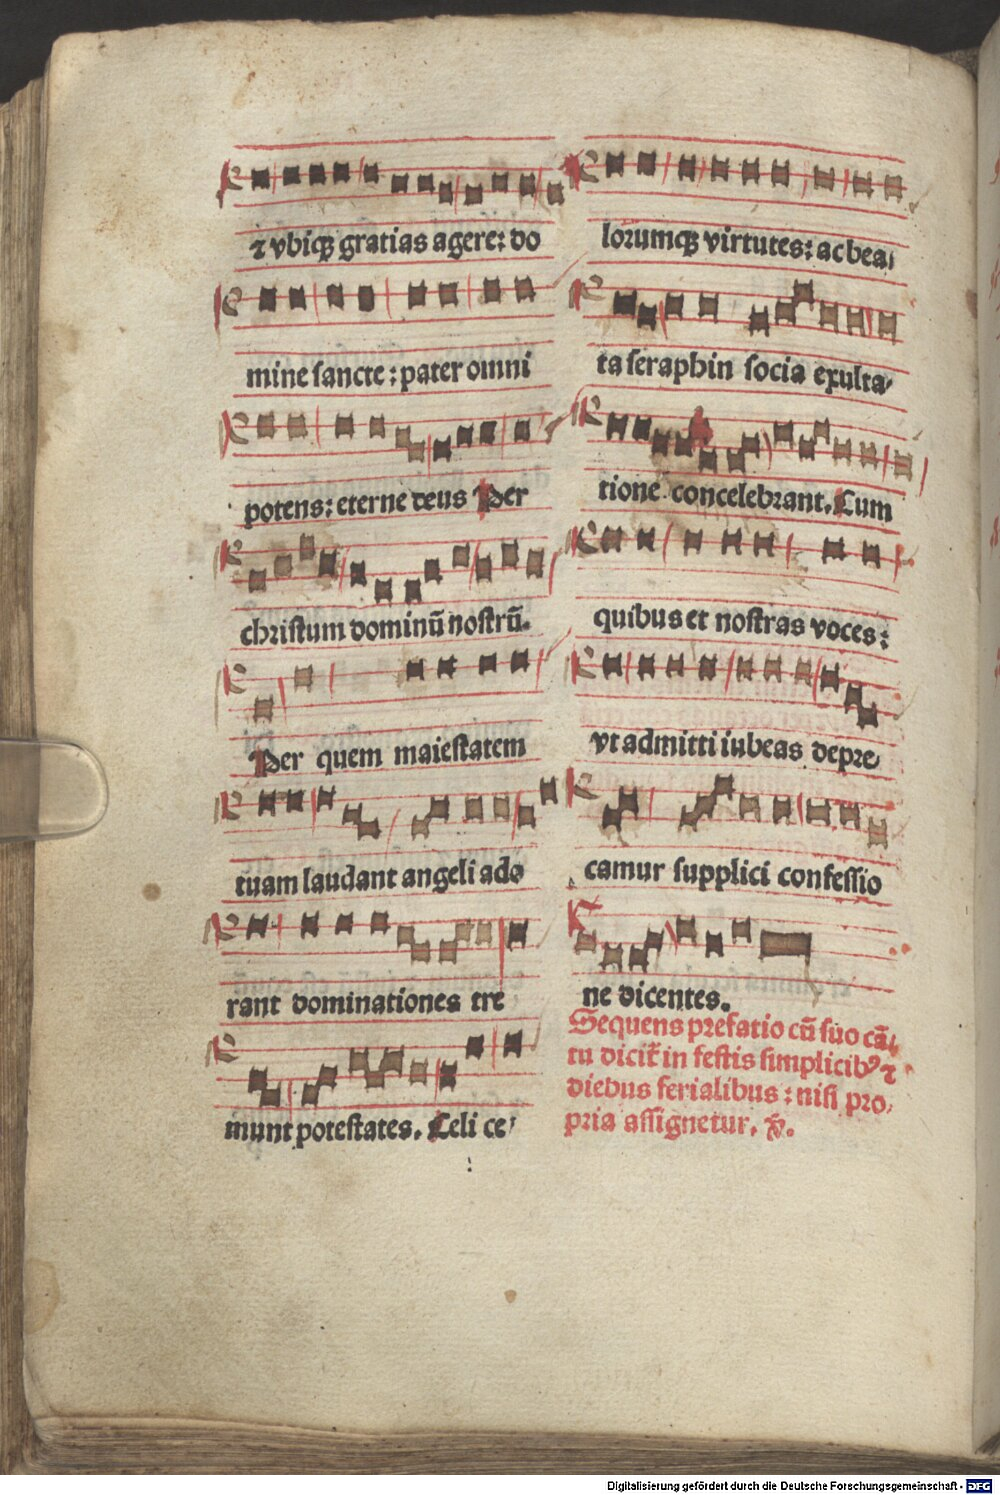 ⁊ vbiqꝫ gratias agere: do
mine sancte : pater omni
potens: eterne deus Per
christum dominū nostrū.
Per quem maiestatem
tuam laudant angeli ado
rant dominationes tre
munt potestates. Celi ce/
lorumqꝫ virtutes: ac bea/
ta seraphin socia exulta/
tione concelebrant. Cum
quibus et nostras voces:
vt admitti iubeas depre/
camur supplici confessio
ne dicentes.
Sequens prefatio cū suo cā/
tu dicit̃ in festis simplicibꝰ ⁊
diebus ferialibus : nisi pro/
pria assignetur.
Digitalisierung gefördert durch die Deutsche Forschungsgemeinschaft - DFG